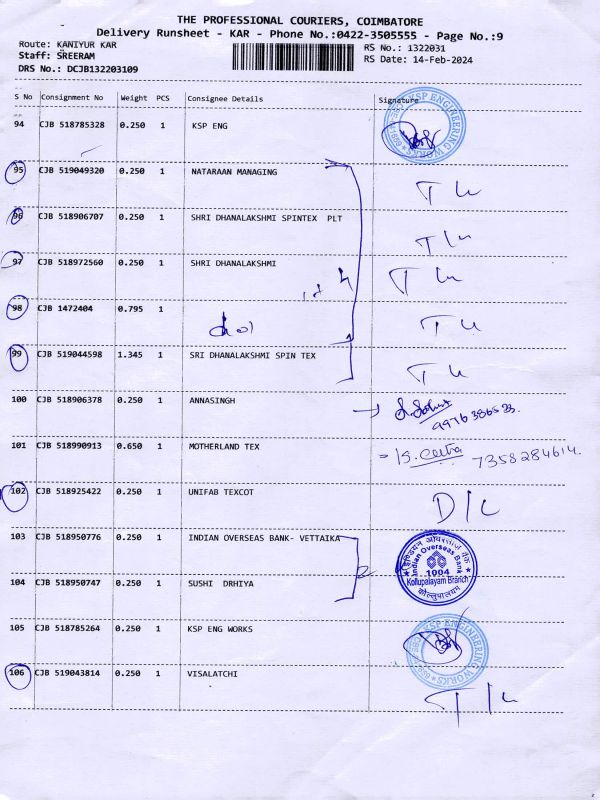 THE PROFESSIONAL COURIERS, COIMBATORE
Delivery Runsheet - KAR - Phone No.:0422-3505555 - Page No.:9
Route: KANIYUR KAR RS No.: 1322031
Staff: SREERAM RS Date: 14-Feb-2024
DRS No.: DCJB132203109
S No Consignment No Weight PCS Consignee Details Signature
94 CJB 518785328 0.250 1 KSP ENG
KSP ENGINEERING WORKS
95 CJB 519049320 0.250 1 NATARAAN MANAGING
96 CJB 518906707 0.250 1 SHRI DHANALAKSHMI SPINTEX PLT
97 CJB 518972560 0.250 1 SHRI DHANALAKSHMI
98 CJB 1472404 0.795 1
99 CJB 519044598 1.345 1 SRI DHANALAKSHMI SPIN TEX
100 CJB 518906378 0.250 1 ANNASINGH
101 CJB 518990913 0.650 1 MOTHERLAND TEX 7358284614.
102 CJB 518925422 0.250 1 UNIFAB TEXCOT D/L
103 CJB 518950776 0.250 1 INDIAN OVERSEAS BANK- VETTAIKA
Indian Overseas Bank
1004
Kollupalayam Branch
104 CJB 518950747 0.250 1 SUSHI DRHIYA
105 CJB 518785264 0.250 1 KSP ENG WORKS
KSP ENGINEERING WORKS
106 CJB 519043814 0.250 1 VISALATCHI